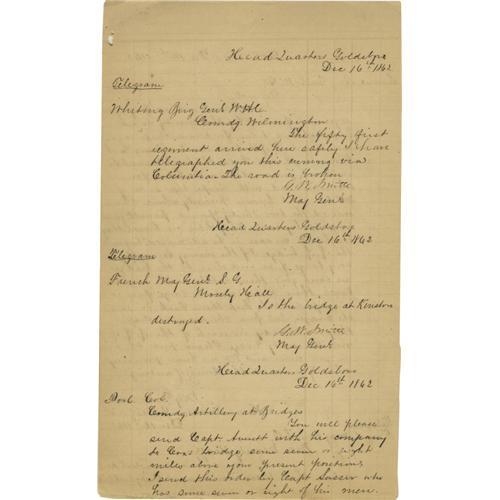 Head Quarters Goldsboro
Dec 16th 1862
Telegram
Whiting Brig Genl W.H.C.
Comdg Wilmington
The fifty first
regiment arrived here safely I have
telegraphed you this evening via
Columbia. The road is broken
G. W. Smith
Maj Genl
Head Quarters Goldsboro
Dec 16th 1862
Telegram
French Maj Genl S. G.
Mosely Hall
Is the bridge at Kinston
destroyed.
G. W. Smith
Maj Genl
Head Quarters Goldsboro
Dec 16th 1862
Col.
Comdg Artillery at Bridges
You will please
send Capt with his company
to Cox's bridge, some seven or eight
miles above your present position,
I send this order by Capt Sasser who
has some seven or eight of his men.